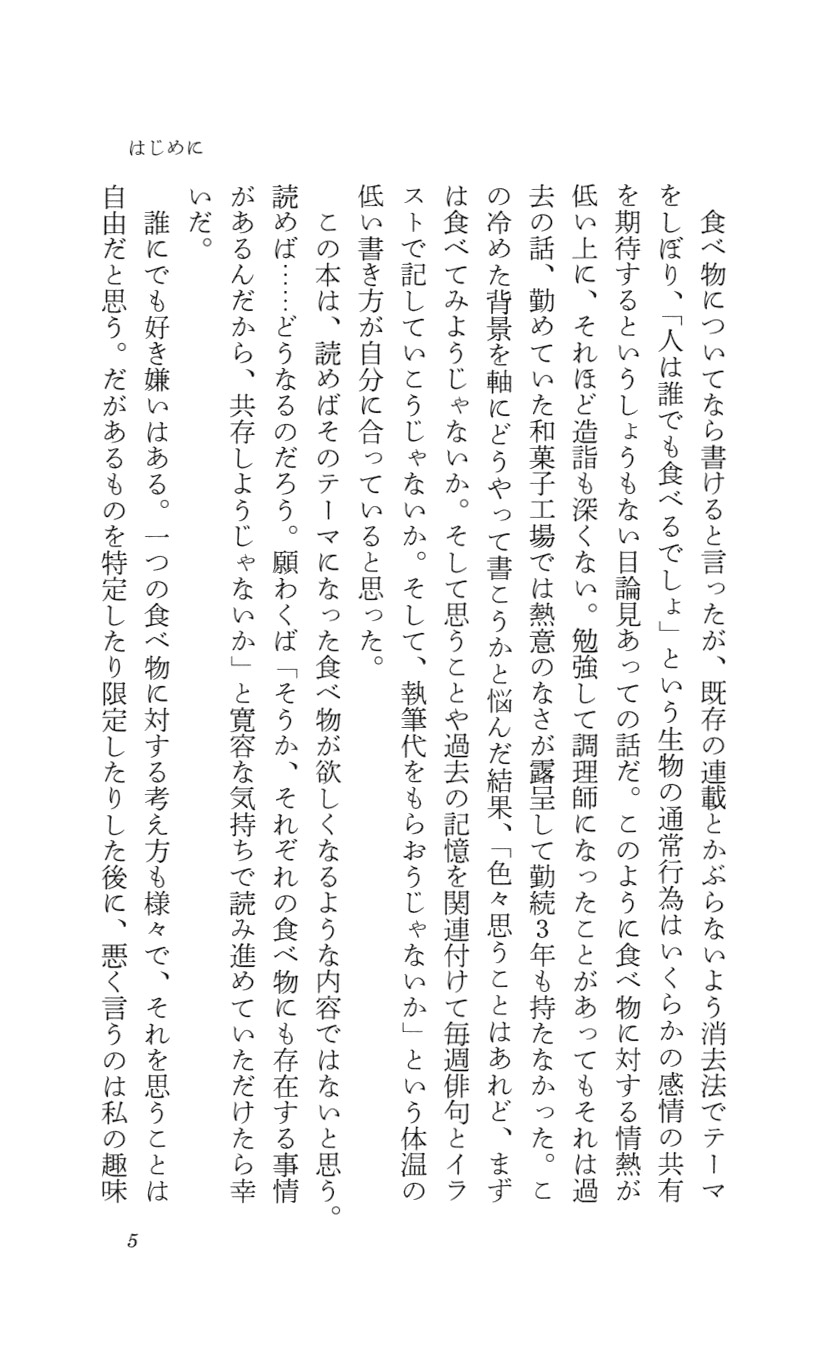 はじめに
食べ物についてなら書けると言ったが、既存の連載とかぶらないよう消去法でテーマ
をしぼり、「人は誰でも食べるでしょ」という生物の通常行為はいくらかの感情の共有
を期待するというしょうもない目論見あっての話だ。このように食べ物に対する情熱が
低い上に、それほど造詣も深くない。勉強して調理師になったことがあってもそれは過
去の話、勤めていた和菓子工場では熱意のなさが露呈して勤続3年も持たなかった。こ
の冷めた背景を軸にどうやって書こうかと悩んだ結果、「色々思うことはあれど、まず
は食べてみようじゃないか。そして思うことや過去の記憶を関連付けて毎週俳句とイラ
ストで記していこうじゃないか。そして、執筆代をもらおうじゃないか」という体温の
低い書き方が自分に合っていると思った。
この本は、読めばそのテーマになった食べ物が欲しくなるような内容ではないと思う。
読めば……どうなるのだろう。願わくば「そうか、それぞれの食べ物にも存在する事情
があるんだから、共存しようじゃないか」と寛容な気持ちで読み進めていただけたら幸
いだ。
誰にでも好き嫌いはある。一つの食べ物に対する考え方も様々で、それを思うことは
自由だと思う。だがあるものを特定したり限定したりした後に、悪く言うのは私の趣味
5